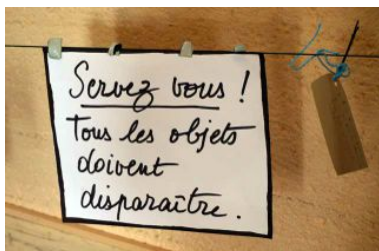 Servez vous !
Tous les objets
doivent
disparaître.